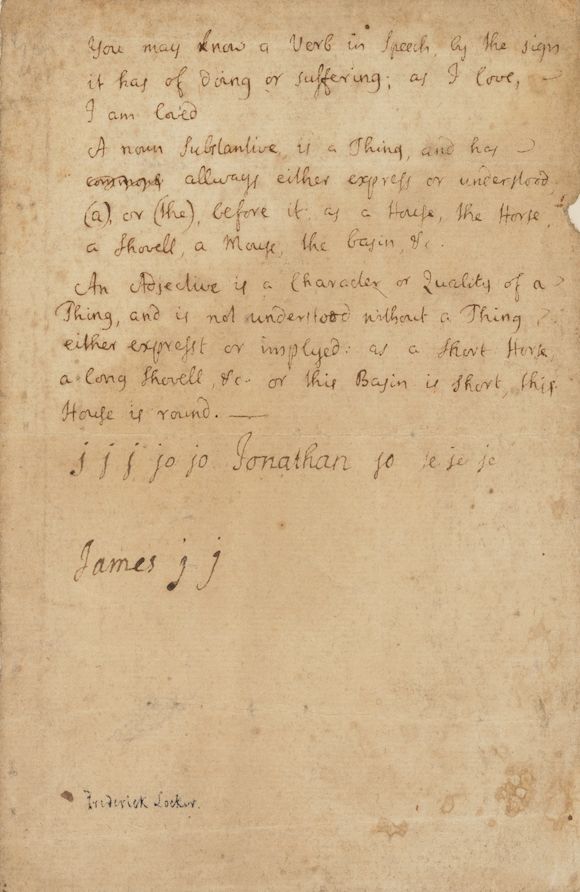 You may know a Verb in Speech, by the sign
it has of doing or suffering; as I love, –
I am loved
A noun Substantive, is a Thing, and has –
commonly allways either express or understood
(a), or (the), before it: as a House, the Horse,
a Shovell, a Mouse, the basin, &c.
An Adjective is a Character or Quality of a
Thing, and is not understood without a Thing
either expresst or implyed: as a Short Horse,
a long Shovell, &c. or this Basin is short, this
House is round. —
j j j jo jo Jonathan jo je je je
James j j
Frederick Locker.